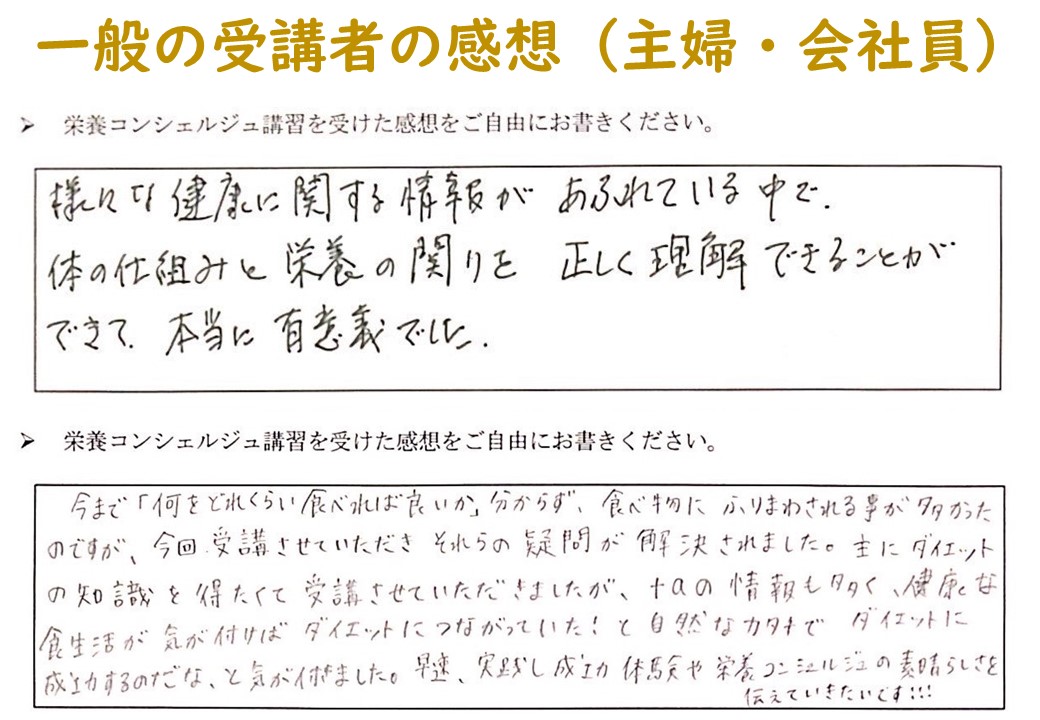 一般の受講者の感想（主婦・会社員）
➤ 栄養コンシェルジュ講習を受けた感想をご自由にお書きください。
様々な健康に関する情報が あふれている中で、
体の仕組みと栄養の関りを 正しく理解できることが
できて、本当に有意義でした。
➤ 栄養コンシェルジュ講習を受けた感想をご自由にお書きください。
今まで「何をどれくらい食べれば良いか」分からず、食べ物に ふりまわされる事が多かった
のですが、今回受講させていただき それらの疑問が解決されました。主にダイエット
の知識を得たくて受講させていただきましたが、+αの情報も多く、健康な
食生活が気が付けばダイエットにつながっていた！と自然なカタチで ダイエットに
成功するのだな、と気が付きました。早速、実践し成功体験や栄養コンシェルジュの素晴らしさを
伝えていきたいです!!!